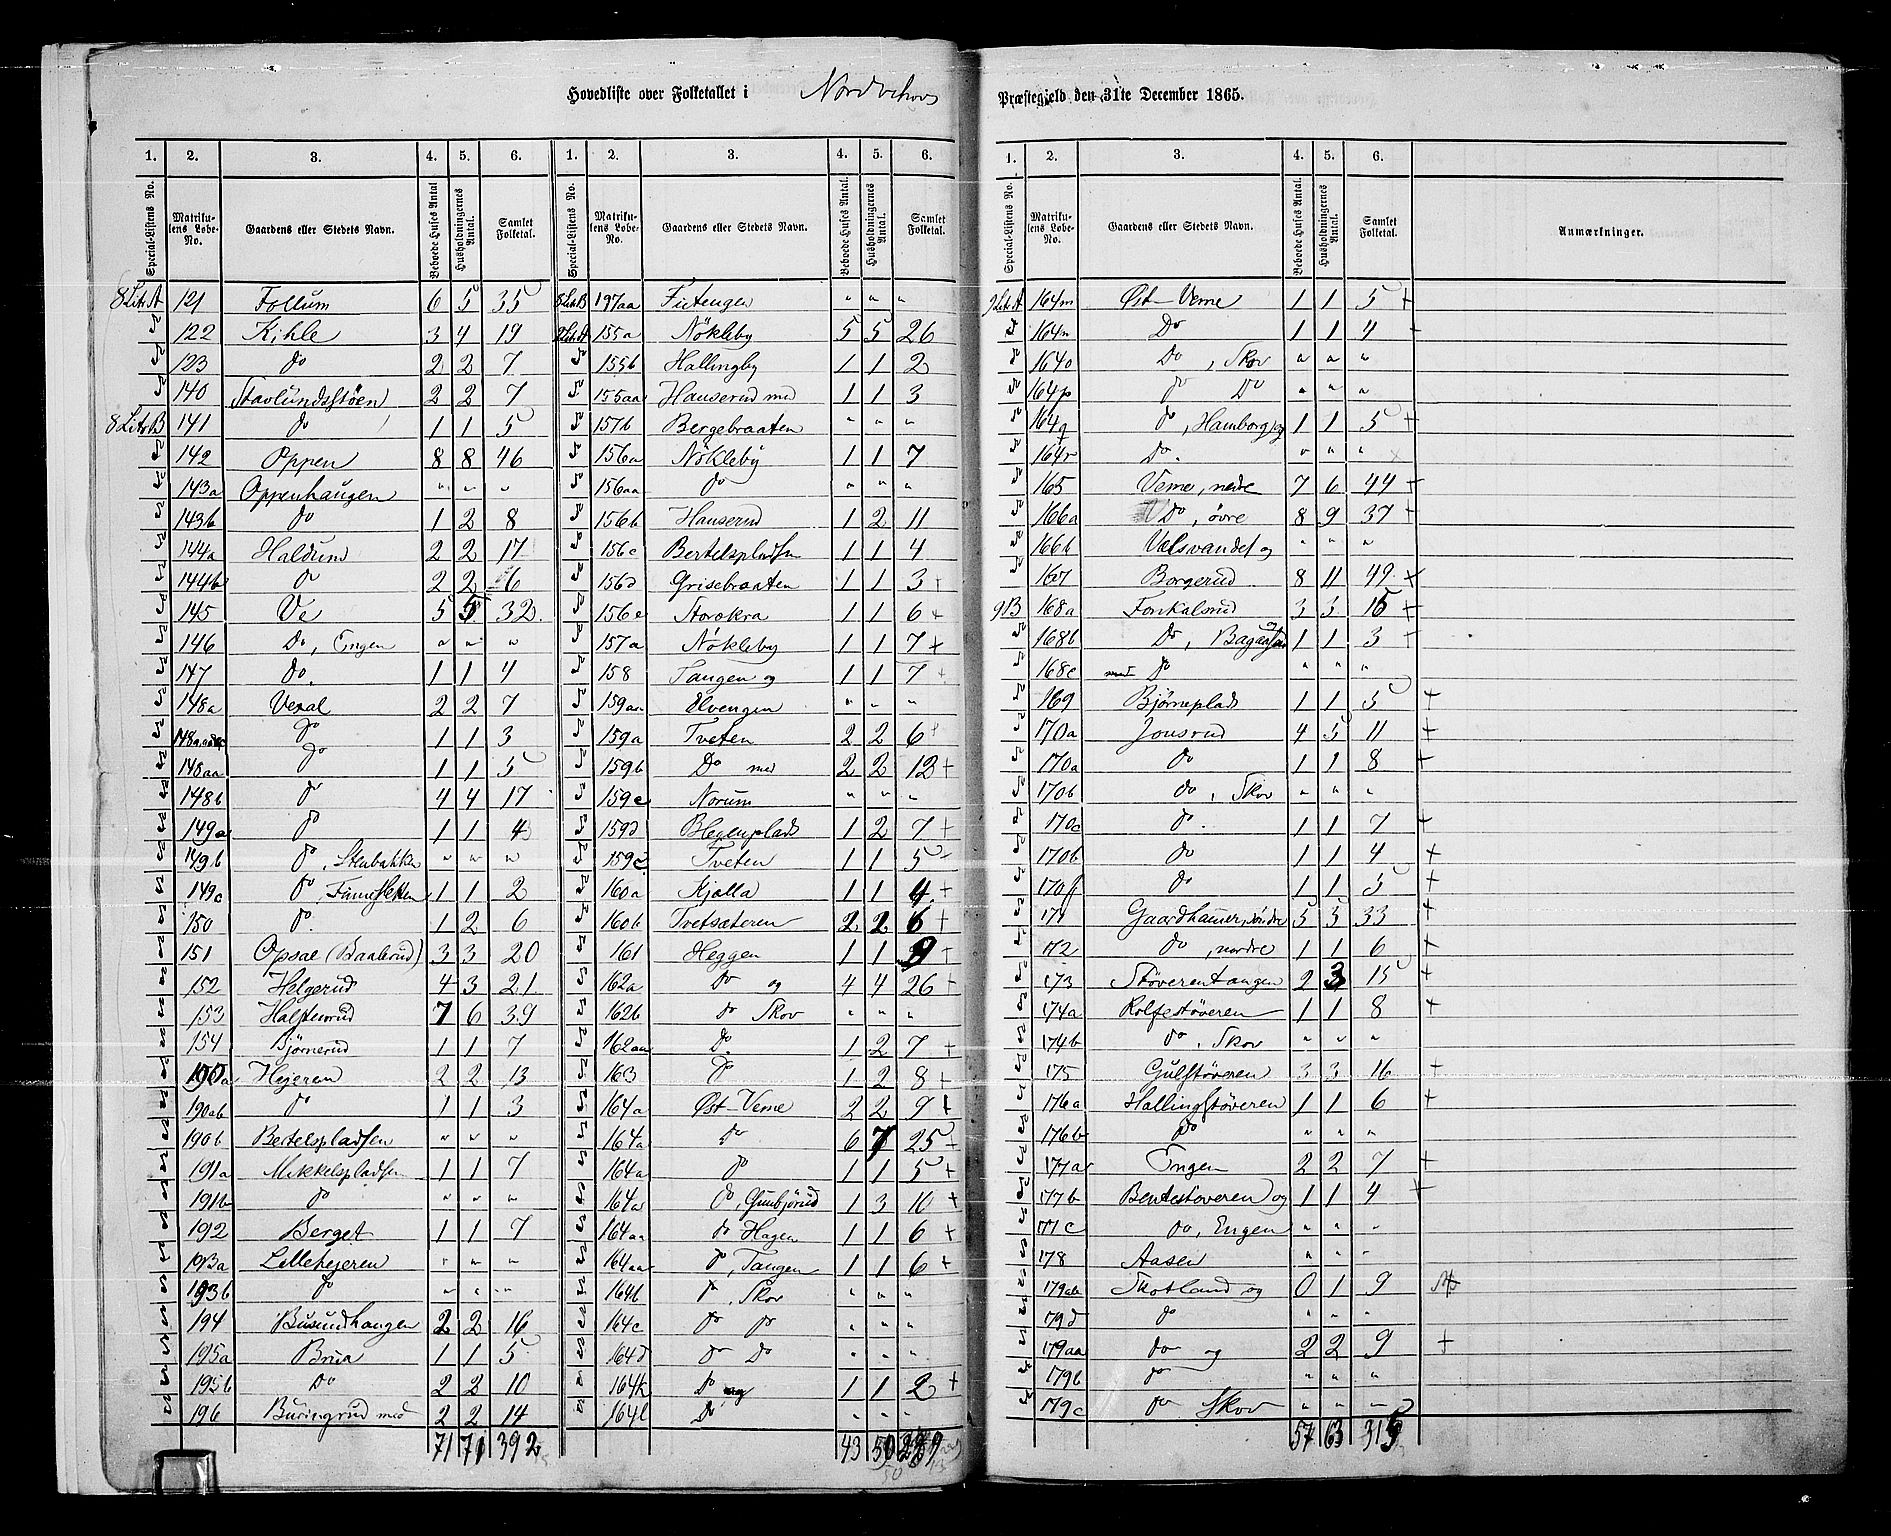 Hovedliste over Folketallet i Nordrehov Præstegjeld den 31te December 1865.
1. 2. 3. 4. 5. 6.
Special-Listens No. Matrikulens Løbe-No. Gaardens eller Stedets Navn. Beboede Huses Antal. Husholdningernes Antal. Samlet Folketal.
8 Litr A 121 Follum 6 5 35
do 122 Kihle 3 4 19
do 123 do 2 2 7
do 140 Stavlundsstøen 2 2 7
8 Litr B 141 do 1 1 5
do 142 Oppen 8 8 46
do 143a Oppenhaugen " " "
do 143b Do 1 2 8
do 144a Haldum 2 2 17
do 144b do 2 2 6
do 145 Ve 5 5 32
do 146 Do, Engen " " "
do 147 do. 1 1 4
do 148a Vexal 2 2 7
do do 1 1 3
do 148aa do 1 1 5
do 148b do 4 4 17
do 149a do 1 1 4
do 149b do, Stenbakken " " "
do 149c do, 1 1 2
do 150 do. 1 2 6
do 151 Opsal (Baalerud) 3 3 20
do 152 Helgerud 4 3 21
do 153 Halstenrud 7 6 39
do 154 Bjørnerud 1 1 7
do 190a Hejeren 2 2 13
do 190ab do 1 1 3
do 190b Bertelspladsen " " "
do 191a Mikkelspladsen 1 1 7
do 191b do " " "
do 192 Berget 1 1 7
do 193a Lillehejeren " " "
do 193b do " " "
do 194 Busundhaugen 2 2 16
do 195a Brua 1 1 5
do 195b Do 2 2 10
do 196 Buringrud med 2 2 14
71 71 392
1. 2. 3. 4. 5. 6.
Special-Listens No. Matrikulens Løbe-No. Gaardens eller Stedets Navn. Beboede Huses Antal. Husholdningernes Antal. Samlet Folketal.
8 Litr B 197aa Futengen " " "
155a Nökleby 5 5 26
do 155b Hallingby 1 1 2
do 155aa Hauserud med 1 1 3
do 157b Bergebraaten " " "
do 156a Nökleby 1 1 7
do 156aa do " " "
do 156b Hauserud 1 2 11
do 156c Bertelspladsen 1 1 4
do 156d Grisebraaten 1 1 3 +
do 156e Storokra 1 1 6 +
do 157a Nökleby 1 1 7 +
do 158 Tangen og 1 1 7 +
do 159aa Elvengen " " "
do 159a Tveten 2 2 6
do 159b Do med 2 2 12 +
do 159c Norum " " "
do 159d Blegenplads 1 2 7 +
do 159e Tveten 1 1 5
do 160a Kjølla 1 1 4 +
do 160b Tvetsæteren 2 2 6 +
do 161 Heggen 1 1 9 +
do 162a Do og 4 4 26 +
do 162b do Skov " " "
do 162aa Do. 1 2 7 +
do 163 do 1 2 8 +
do 164a Øst-Veme 2 2 9 +
do 164a Do 6 7 25 +
do 164a do 1 1 5 +
do 164a do, Gunbjörud 1 3 10 +
do 164aa do Hagen 1 1 6 +
do 164aa do, Tangen 1 1 6 +
do 164b do, Skov " " "
do 164c do do " " "
do 164d do Do " " "
do 164k Do og 1 1 2 +
do 164l Do " " "
43 50
1. 2. 3. 4. 5. 6.
Special-Listens No. Matrikulens Løbe-No. Gaardens eller Stedets Navn. Beboede Huses Antal. Husholdningernes Antal. Samlet Folketal. Anmærkninger.
9 Litr A 164m Øst-Veme 1 1 5 +
do 164n Do 1 1 4
do 164o Do, Skov " " "
do 164p do Do " " "
do 164q do, Hamborg og 1 1 5 +
do 164r Do. " " "
do 165 Veme, nedre 7 6 44 +
do 166a Do, övre 8 9 37 +
do 166b Velsvandet og " " "
do 167 Borgerud 8 11 49 +
9 B 168a Fonkalsrud 3 3 15 +
do 168b Do, 1 1 3 +
do 168c med do " " "
do 169 Bjørneplads 1 1 5 +
do 170a Jonsrud 4 5 11 +
do 170a do 1 1 8 +
do 170b do, Skov " " "
do 170c do. 1 1 7 +
do 170b do 1 1 4 +
do 170f do 1 1 5 +
do 171 Gaardhamer, söndre 5 5 33 +
do 172 do, nordre 1 1 6 +
do 173 Støverentangen 2 3 15 +
do 174a Rolfestöveren 1 1 8 +
do 174b do, Skov " " "
do 175 Gulstöveren 3 3 16 +
do 176a Hallingstöveren 1 1 6 +
do 176b do " " "
do 177a Engen 2 2 7 +
do 177b Bentestöveren og 1 1 4 +
do 177c do, Engen " " "
do 178 Aasen " " "
do 179ab Skotland og 0 1 9
do 179d do " " "
do 179aa do og 2 2 9 +
do 179b do " " "
do 179c do Skov " " "
57 63 315